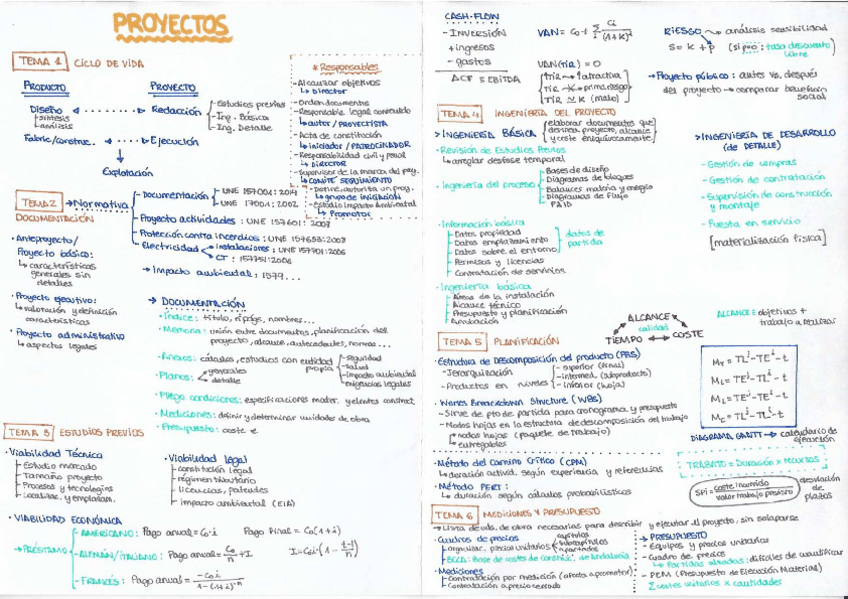 PROYECTOS
TEMA 1 CICLO DE VIDA
PRODUCTO PROYECTO
Diseño Redacción
síntesis
análisis
- Estudios previos
- Ing. Básica
- Ing. Detalle
Fabric/construc. Ejecución
Explotación
* Responsables
- Alcanzar objetivos
↳ Director
- Orden documentos
- Responsable legal contenido
↳ autor / PROYECTISTA
- Acta de constitución
↳ iniciador / PATROCINADOR
- Responsabilidad civil y penal
↳ DIRECTOR
- Supervisor de la marca del proy.
↳ COMITÉ SEGUIMIENTO
- Define, autoriza un proy.
↳ grupo de iniciación
- Estudio Impacto Ambiental
↳ Promotor
TEMA 2 → Normativa
DOCUMENTACIÓN
- Documentación UNE 157001: 2014
UNE 17001: 2002
- Proyecto actividades: UNE 157601: 2007
- Protección contra incendios: UNE 157653:2008
- Electricidad Instalaciones: UNE 157701:2006
CT: 157751:2006
→ Impacto ambiental, 1577...
· Anteproyecto/
Proyecto básico:
↳ características
generales sin
detalles
· Proyecto ejecutivo:
↳ valoración y definición
características
· Proyecto administrativo
↳ aspectos legales
→ DOCUMENTACIÓN
· Índice: título, nº págs, nombres...
· Memoria: unión entre documentos, planificación del
proyecto, alcance, antecedentes, normas...
· Anexos: cálculos, estudios con entidad
propia
- seguridad
- salud
- impacto ambiental
- exigencias legales
· Planos: generales
detalle
· Pliego condiciones: especificaciones mater. y elentos construct.
· Mediciones: definir y determinar unidades de obra
· Presupuesto: coste €.
TEMA 3 ESTUDIOS PREVIOS
· Viabilidad Técnica
- Estudio mercado
- Tamaño proyecto
- Procesos y tecnologías
- Localizac. y emplazam.
· Viabilidad legal
- constitución legal
- régimen tributario
- licencias, patentes
- impacto ambiental (EIA)
· VIABILIDAD ECONÓMICA
→ PRÉSTAMO
- AMERICANO: Pago anual = C₀·i Pago Final = C₀(1+i)
- ALEMÁN/ITALIANO: Pago anual = C₀/n + I I = C₀i·(1 - (t-1)/n)
- FRANCÉS: Pago anual = -C₀i / 1-(1+i)⁻ⁿ
CASH-FLOW
- INVERSIÓN
+ ingresos
- gastos
ACF ≤ EBITDA
VAN = C₀ + Σ Ci/(1+K)ⁱ
VAN(TIR) = 0
TIR → ↑atractiva
TIR - K → prima riesgo
TIR ≃ K (malo)
RIESGO → análisis sensibilidad
S = K + p (si p=0: tasa descuento
libre
→ Proyecto público: antes vs. después
del proyecto → comparar beneficio
social
TEMA 4 INGENIERÍA DEL PROYECTO
> INGENIERÍA BÁSICA elaborar documentos que
definen proyecto, alcance
y coste inequívocamente
· Revisión de Estudios Previos
↳ arreglar desfase temporal
· Ingeniería del proceso
- Bases de diseño
- Diagramas de bloques
- Balances materia y energía
- Diagramas de Flujo
P&ID
· Información básica
- Datos propiedad
- Datos emplazamiento
- Datos sobre el entorno
- Permisos y licencias
- Contratación de servicios
datos de
partida
· Ingeniería básica
- Áreas de la instalación
- Alcance técnico
- Presupuesto y planificación
- Aprobación
> INGENIERÍA DE DESARROLLO
(de DETALLE)
- Gestión de compras
- Gestión de contratación
- Supervisión de construcción
y montaje
- Puesta en servicio
[materialización física]
ALCANCE
calidad
TIEMPO COSTE
ALCANCE = objetivos +
trabajo a realizar
TEMA 5 PLANIFICACIÓN
· Estructura de Descomposición del producto (PBS)
- Jerarquización
- Productos en niveles
- superior (final)
- intermed. (subproducto)
- inferior (hoja)
· Works Breakdown Structure (WBS)
- Sirve de pto de partida para cronograma y presupuesto
- Nodos hojas en la estructura de descomposición del trabajo
nodos hojas (paquete de trabajo)
entregables
M_T = TLʲ - TEⁱ - t
M_L = TEʲ - TLⁱ - t
M_I = TEʲ - TEⁱ - t
M_C = TLʲ - TLⁱ - t
DIAGRAMA GANTT → calendario de
ejecución
· Método del camino crítico (CPM)
↳ duración activid. según experiencia y referencias
· Método PERT:
↳ duración según cálculos probabilísticos
TRABAJO = Duración × recursos
SPI = coste incurrido / valor trabajo previsto
desviación
de
plazos
TEMA 6 MEDICIONES Y PRESUPUESTO
→ Lista de uds. de obra necesarias para describir y ejecutar el proyecto, sin solaparse
· Cuadros de precios
- organizar precios unitarios
capítulos
subcapítulos
apartados
- BCCA: Base de costes de construc. de Andalucía
· Mediciones
- Contratación por medición (afecta a promotor)
- Contratación a precio cerrado
→ PRESUPUESTO
- Equipos y precios unitarios
- Cuadro de precios
↳ Partidas alzadas: difíciles de cuantificar
- PEM (Presupuesto de Ejecución Material)
Σ costes unitarios × cantidades